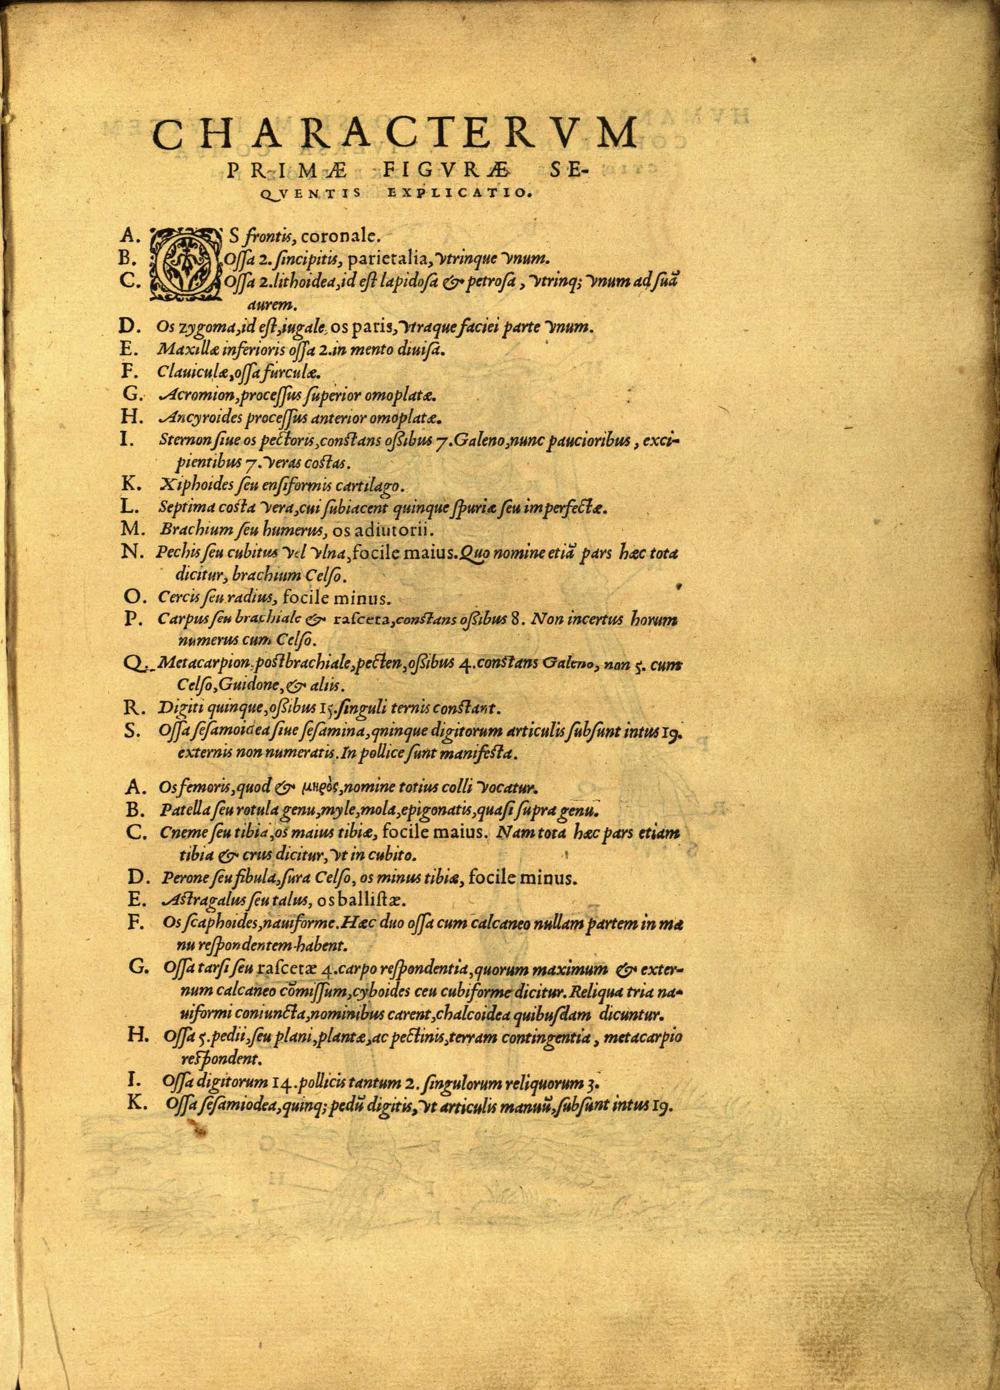 CHARACTERVM
PRIMÆ FIGVRÆ SE-
QVENTIS EXPLICATIO.
A. OS frontis, coronale.
B. Ossa 2. sincipitis, parietalia, vtrinque vnum.
C. Ossa 2. lithoidea, id est lapidosa & petrosa, vtrinq; vnum ad suā
aurem.
D. Os zygoma, id est, iugale, os paris, vtraque faciei parte vnum.
E. Maxillæ inferioris ossa 2. in mento diuisa.
F. Clauiculæ, ossa furculæ.
G. Acromion, processus superior omoplatæ.
H. Ancyroides processus anterior omoplatæ.
I. Sternon siue os pectoris, constans ossibus 7. Galeno, nunc paucioribus, exci-
pientibus 7. veras costas.
K. Xiphoides seu ensiformis cartilago.
L. Septima costa vera, cui subiacent quinque spuriæ seu imperfectæ.
M. Brachium seu humerus, os adiutorii.
N. Pechis seu cubitus vel vlna, focile maius. Quo nomine etiā pars hæc tota
dicitur, brachium Celso.
O. Cercis seu radius, focile minus.
P. Carpus seu brachiale & rasceta, constans ossibus 8. Non incertus horum
numerus cum Celso.
Q. Metacarpion, postbrachiale, pecten, ossibus 4. constans Galeno, non 5. cum
Celso, Guidone, & aliis.
R. Digiti quinque, ossibus 15. singuli ternis constant.
S. Ossa sesamoidea siue sesamina, qninque digitorum articulis subsunt intus 19.
externis non numeratis. In pollice sunt manifesta.
A. Os femoris, quod & μηρὸς, nomine totius colli vocatur.
B. Patella seu rotula genu, myle, mola, epigonatis, quasi supra genu.
C. Cneme seu tibia, os maius tibiæ, focile maius. Nam tota hæc pars etiam
tibia & crus dicitur, vt in cubito.
D. Perone seu fibula, sura Celso, os minus tibiæ, focile minus.
E. Astragalus seu talus, os ballistæ.
F. Os scaphoides, nauiforme. Hæc duo ossa cum calcaneo nullam partem in ma
nu respondentem habent.
G. Ossa tarsi seu rascetæ 4. carpo respondentia, quorum maximum & exter-
num calcaneo cōmissum, cyboides ceu cubiforme dicitur. Reliqua tria na-
uiformi coniuncta, nominibus carent, chalcoidea quibusdam dicuntur.
H. Ossa 5. pedii, seu plani, plantæ, ac pectinis, terram contingentia, metacarpio
respondent.
I. Ossa digitorum 14. pollicis tantum 2. singulorum reliquorum 3.
K. Ossa sesamiodea, quinq; pedū digitis, vt articulis manuū, subsunt intus 19.